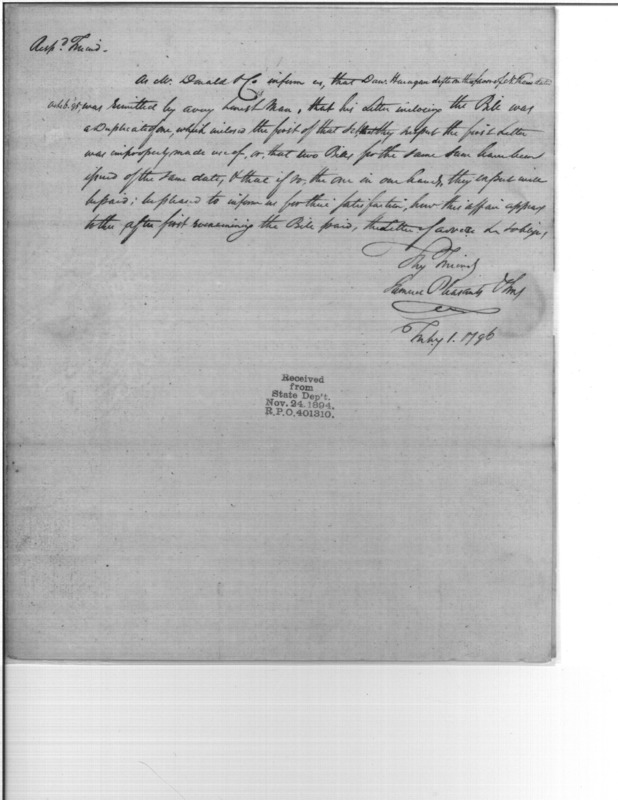 Resp.d Friend.
As Mc Donald & Co inform us, that Danl. Flanagan dft on thee favor of
was remitted by a very honest Man, that his Letter inclosing the Bill was
a Duplicate of one which inclosed the first of that Set, they suspect the first Letter
was improperly made use of, or, that two Bills for the same Sum have been
signed of the same date, & that if so, the one in our hands, they expect will
be paid; be pleased to inform us for their satisfaction, how this affair appears
to thee, after first reexamining the Bill paid, the Letter of advice & oblige,
Thy Friends
Samuel Pleasants & Sons
1. 1796
Received
from
State Dep't.
Nov. 24. 1894.
R.P.O. 401310.